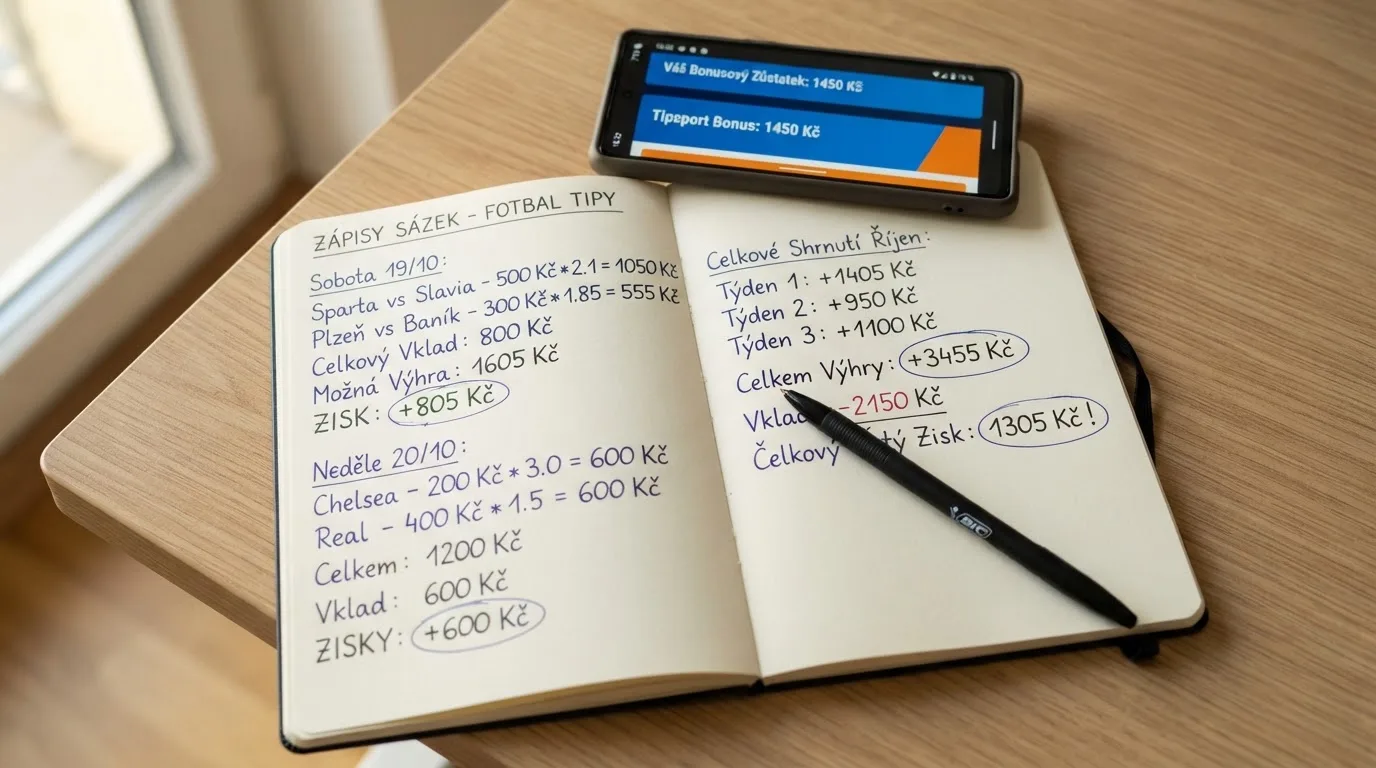 Váš Bonusový Zůstatek: 1450 Kč
Tipsport Bonus: 1450 Kč
ZÁPISY SÁZEK - FOTBAL TIPY
Sobota 19/10:
Sparta vs Slavia - 500 Kč * 2.1 = 1050 Kč
Plzeň vs Baník - 300 Kč * 1.85 = 555 Kč
Celkový Vklad: 800 Kč
Možná Výhra: 1605 Kč
ZISK: +805 Kč
Neděle 20/10:
Chelsea - 200 Kč * 3.0 = 600 Kč
Real - 400 Kč * 1.5 = 600 Kč
Celkem: 1200 Kč
Vklad: 600 Kč
ZISKY: +600 Kč
Celkové Shrnutí Říjen:
Týden 1: +1405 Kč
Týden 2: +950 Kč
Týden 3: +1100 Kč
Celkem Výhry: +3455 Kč
Vklad -2150 Kč
Čelkový tý Zisk: 1305 Kč!
BIC